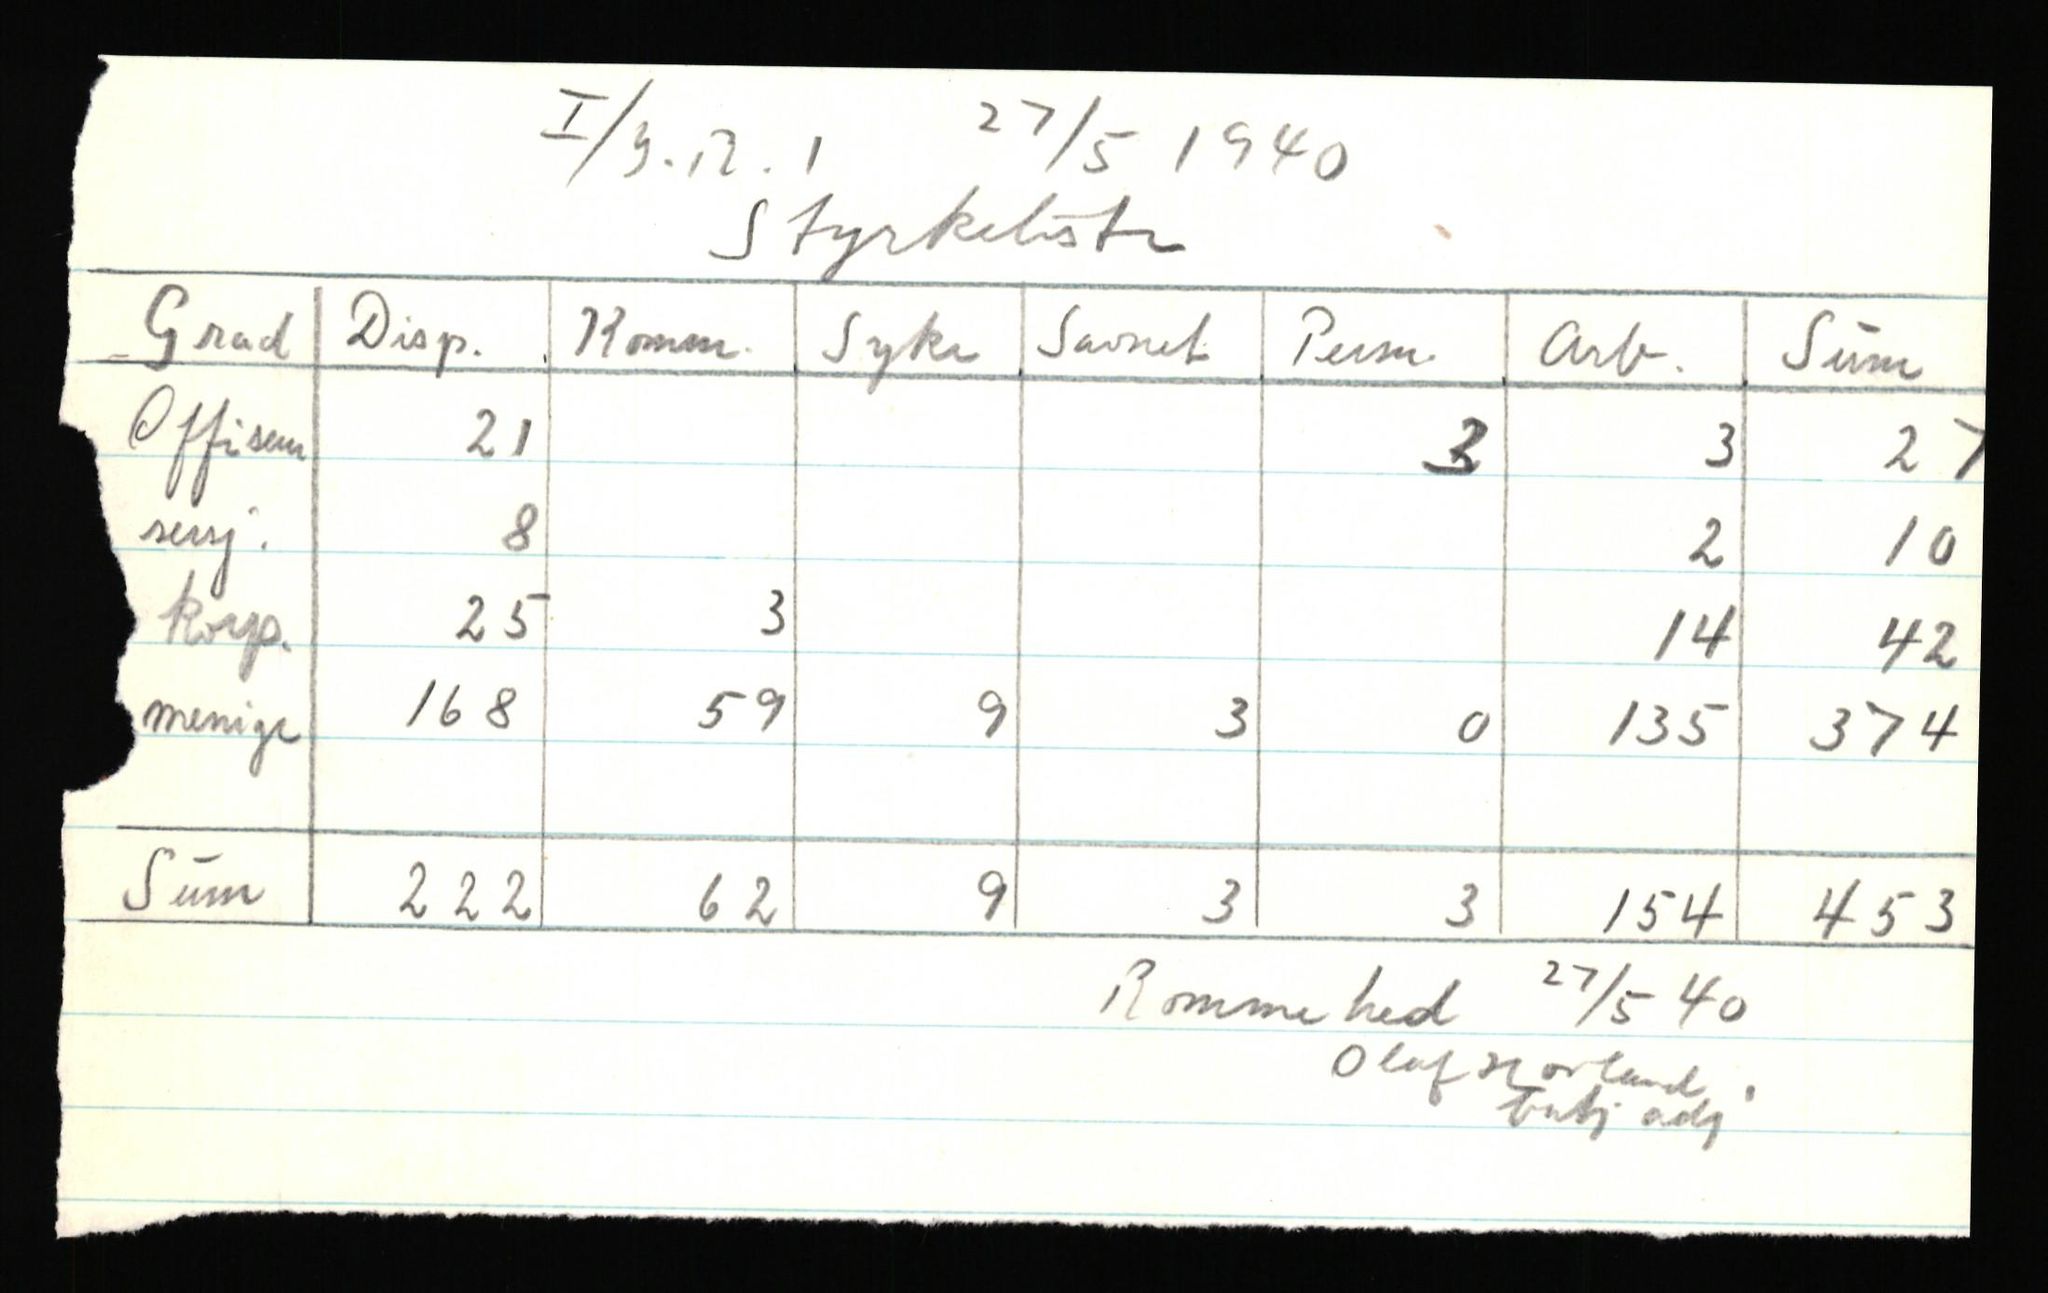 I/J.R. 1 27/5 1940
Styrkeliste
Grad Disp. Komm. Syke Savnet Perm. Arb. Sum
Offiserer 21 3 3 27
serj. 8 2 10
korp. 25 3 14 42
menige 168 59 9 3 0 135 374
Sum 222 62 9 3 3 154 453
Rommehed 27/5 40
Olaf
adj